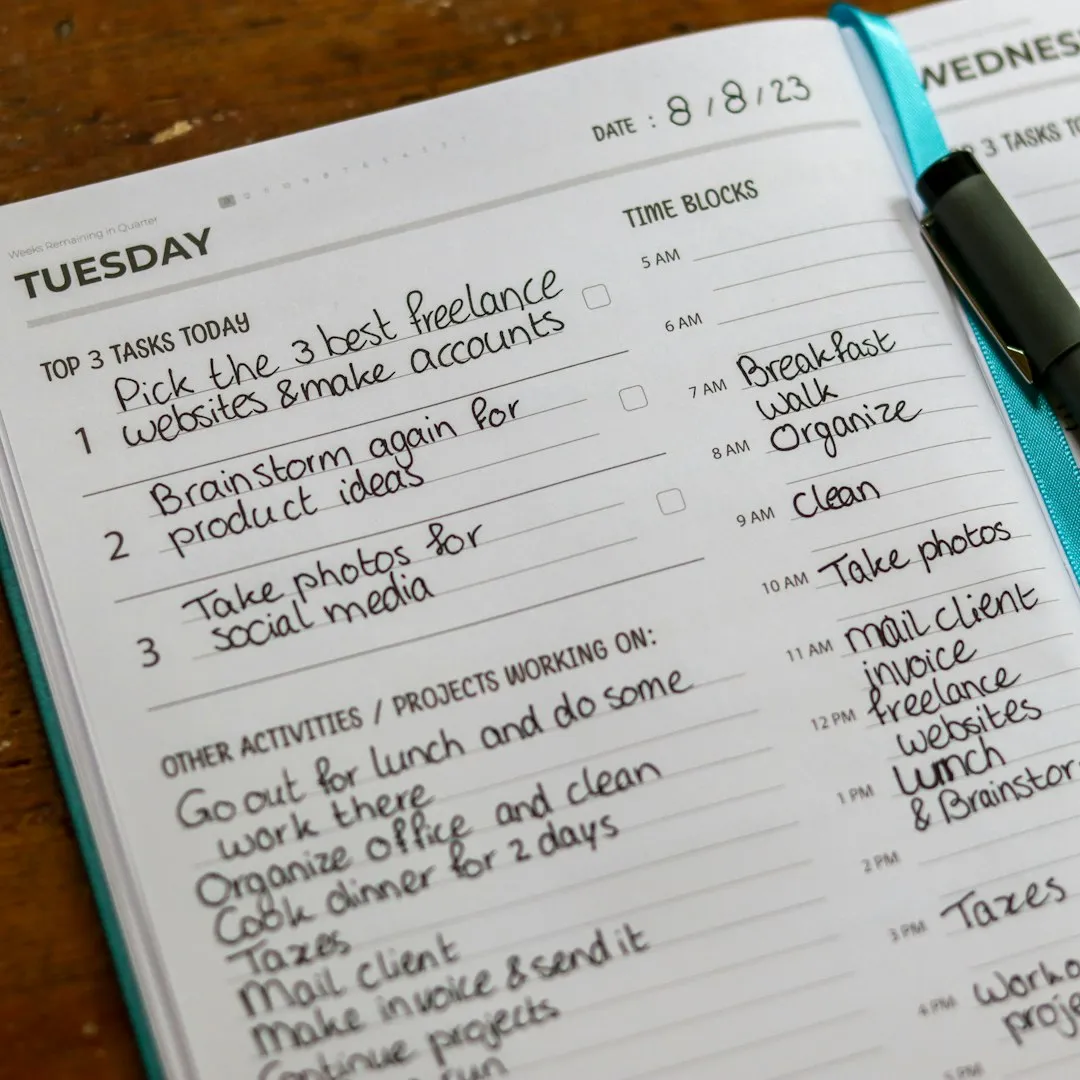 Weeks Remaining in Quarter
TUESDAY
DATE : 8 / 8 / 23
TOP 3 TASKS TODAY
Pick the 3 best freelance
1 websites & make accounts
Brainstorm again for
2 product ideas
Take photos for
3 social media
OTHER ACTIVITIES / PROJECTS WORKING ON:
Go out for lunch and do some
work there
Organize office and clean
Cook dinner for 2 days
Taxes
Mail client
Make invoice & send it
Continue projects
run
TIME BLOCKS
5 AM
6 AM
7 AM Breakfast
walk
8 AM Organize
9 AM Clean
10 AM Take photos
11 AM mail client
invoice
12 PM freelance
websites
1 PM Lunch
& Brainstor
2 PM
3 PM Taxes
4 PM Worko
proje
PM
WEDNES
3 TASKS TO